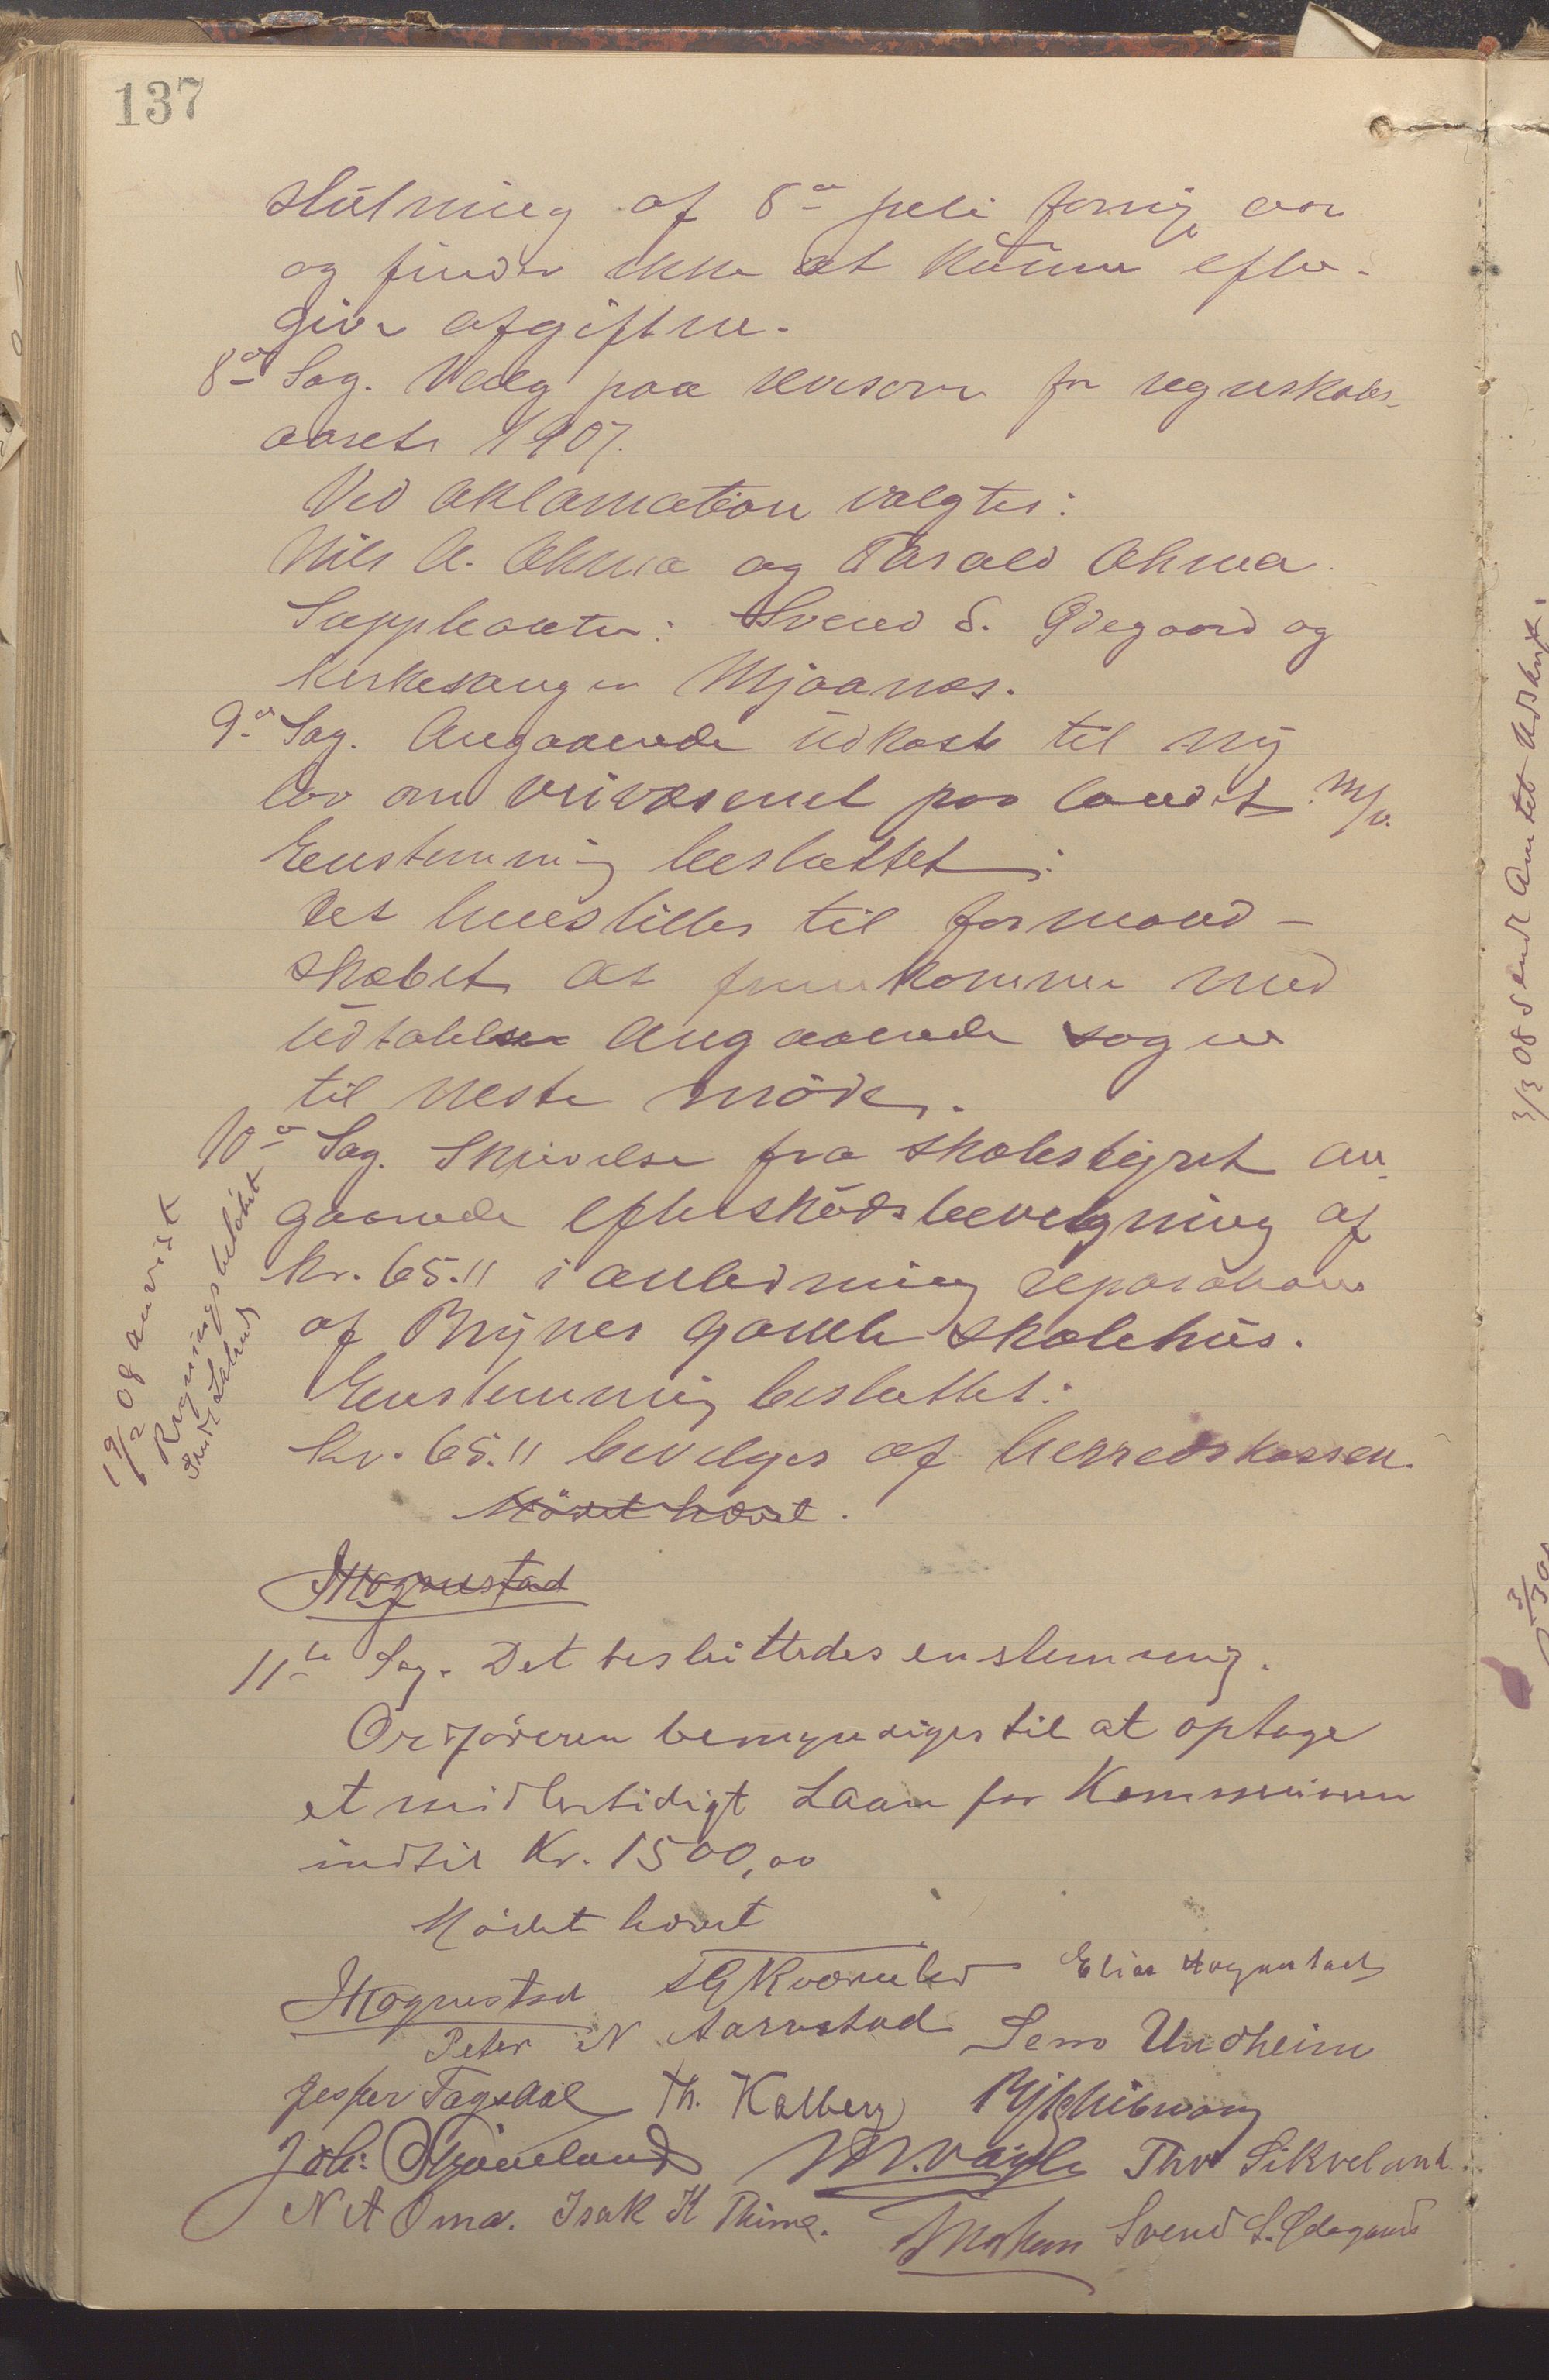 137
slutning af 8de juli forrige aar
og finder ikke at kunne efter-
give afgiften.
8de Sag. Valg paa revisorer for regnskabs-
aaret 1907.
Ved aklamation valgtes:
Nils A. Ohma og Tarald Ohma.
Suppleanter: Svend S. Ødegaard og
Kirkesanger Mjaanes.
9de Sag. Angaaende udkast til ny
lov om veivæsenet paa landet m/v.
Enstemmig besluttet:
Det henstilles til formand-
skabet at fremkomme med
udtalelse angaaende sagen
til neste møde.
10de Sag. Skrivelse fra skolestyret an-
gaaende efterskudsbevilgning af
kr. 65.11 i anledning reparation
af Brynes gamle skolehus.
Enstemmig besluttet:
Kr. 65.11 bevilges af Herredskassen.
19/2 08 anvist
Regningsbeløbet
Mødet hævet.
Hognestad
11te Sag. Det besluttedes enstemmig.
Ordføreren bemyndiges til at optage
et midlertidigt Laan for Kommunen
indtil Kr. 1500,00
Mødet hævet
Hognestad Kværneland Elias Hognestad
Peter N Aarrestad Sem Undheim
Jesper Tagsdal Th. Kalberg
Joh. Thv Sikveland
N A Oma. Isak K Thime. Svend S. Ødegaard
3/3 08 sendt Amtet Udskrift.